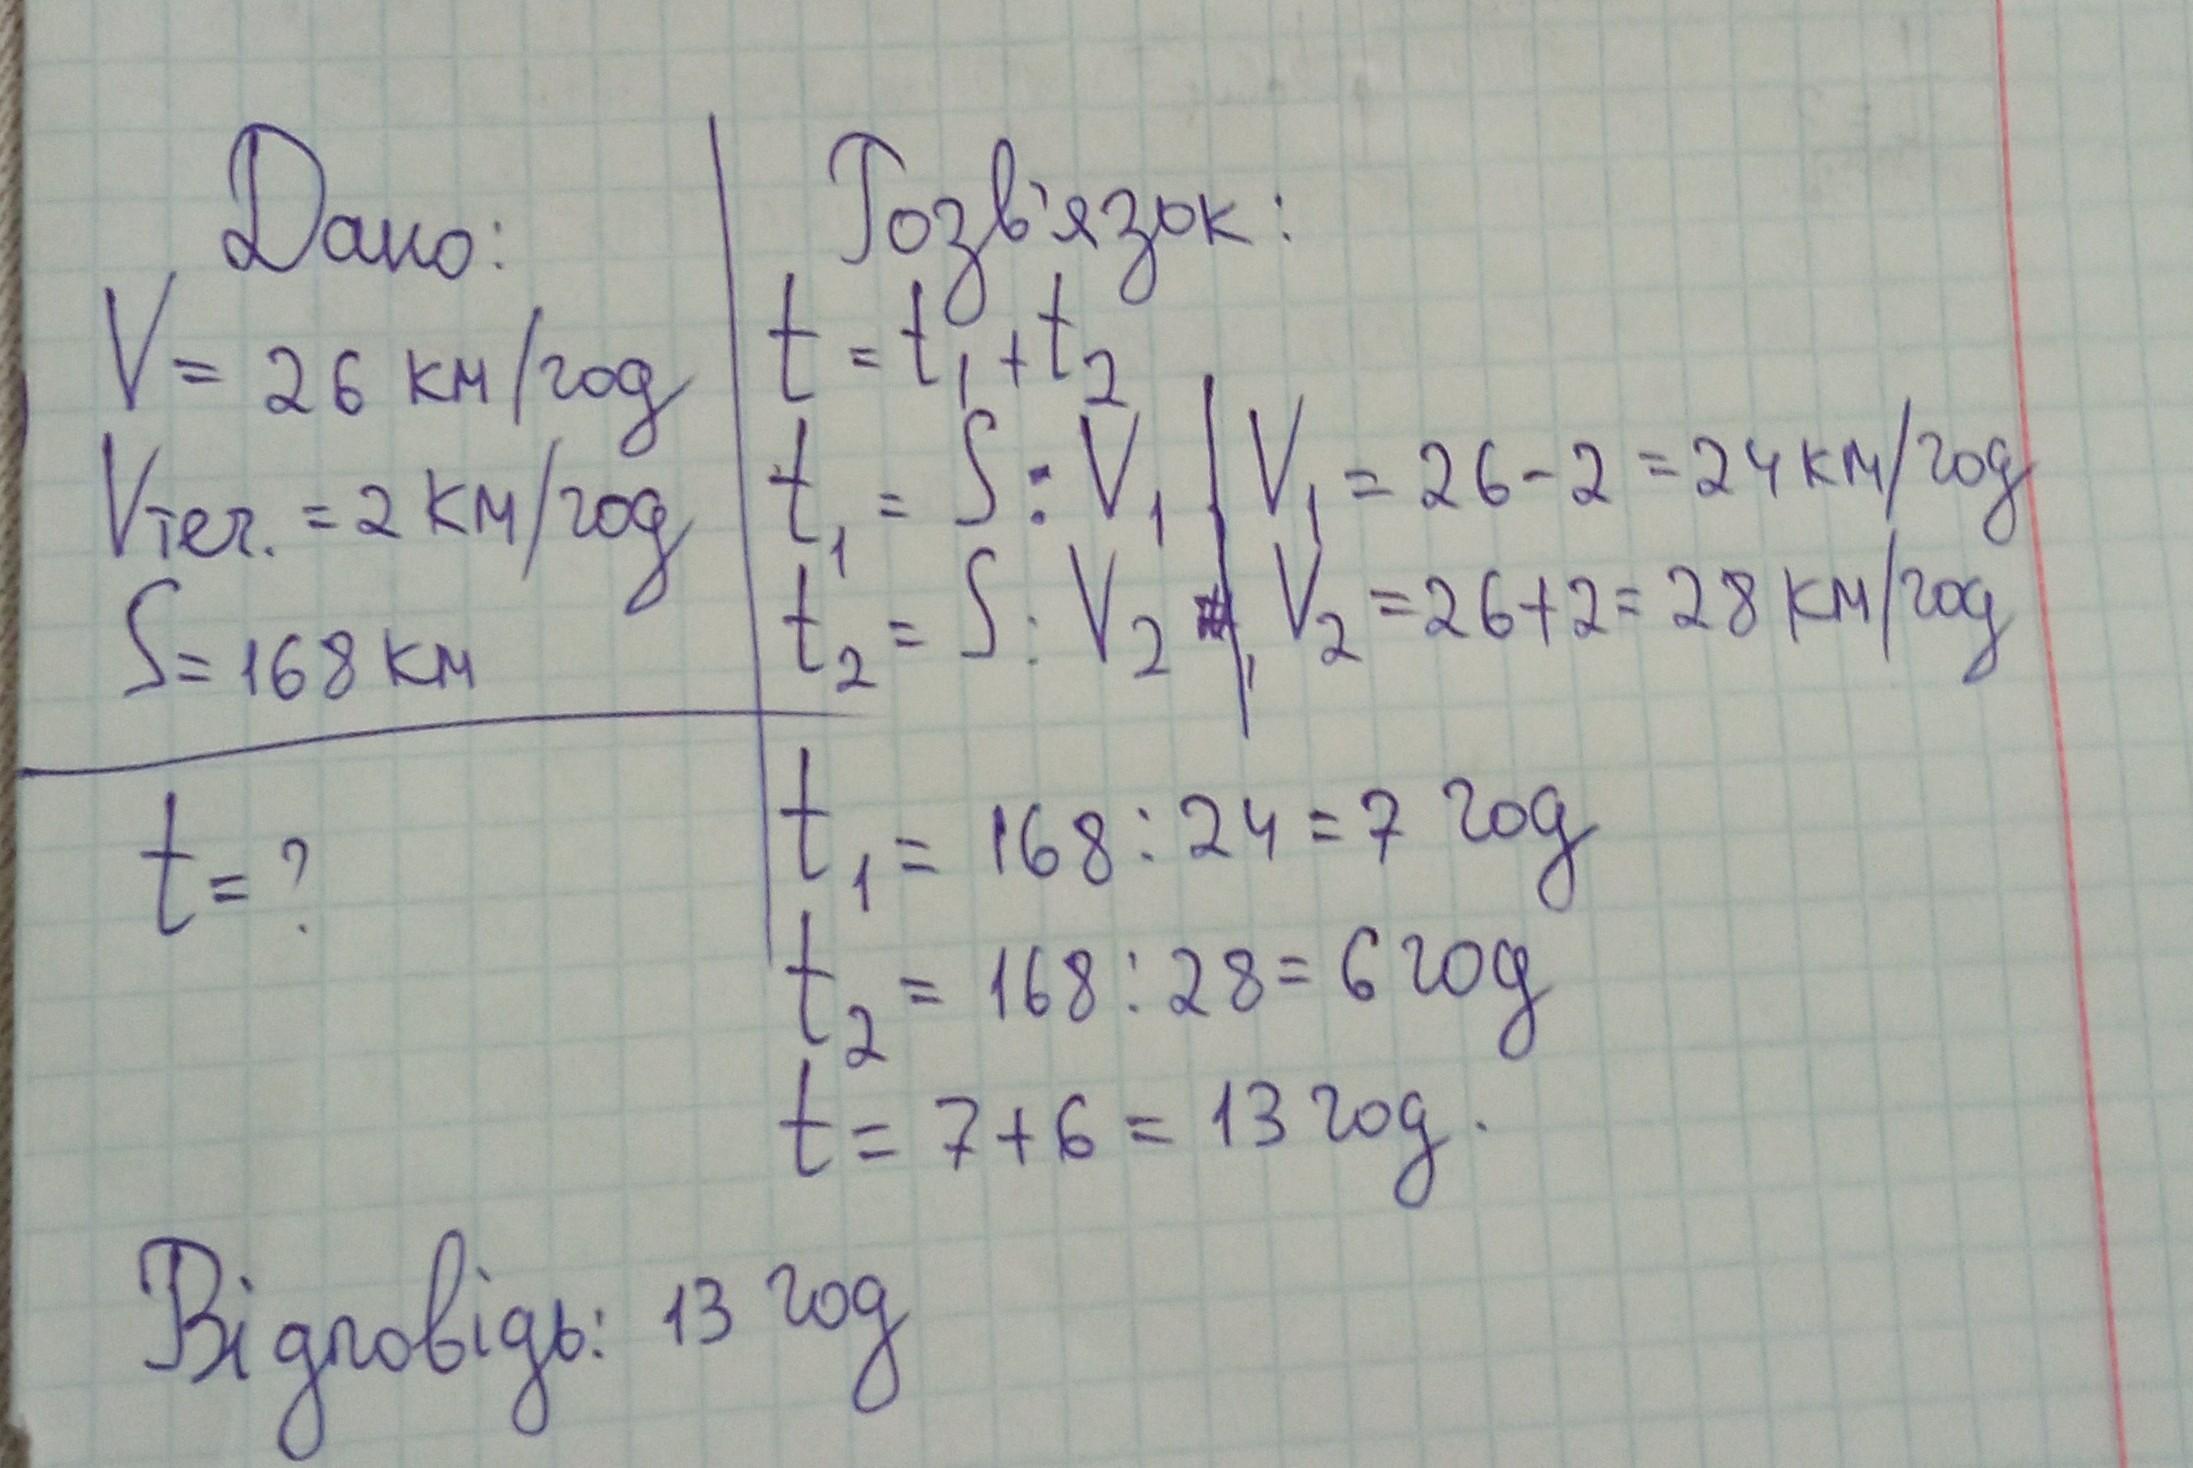 Дано:
V = 26 км/год
Vтеч. = 2 км/год
S = 168 км
t = ?
Розв'язок:
t = t₁ + t₂
t₁ = S : V₁ | V₁ = 26 - 2 = 24 км/год
t₂ = S : V₂ | V₂ = 26 + 2 = 28 км/год
t₁ = 168 : 24 = 7 год
t₂ = 168 : 28 = 6 год
t = 7 + 6 = 13 год.
Відповідь: 13 год